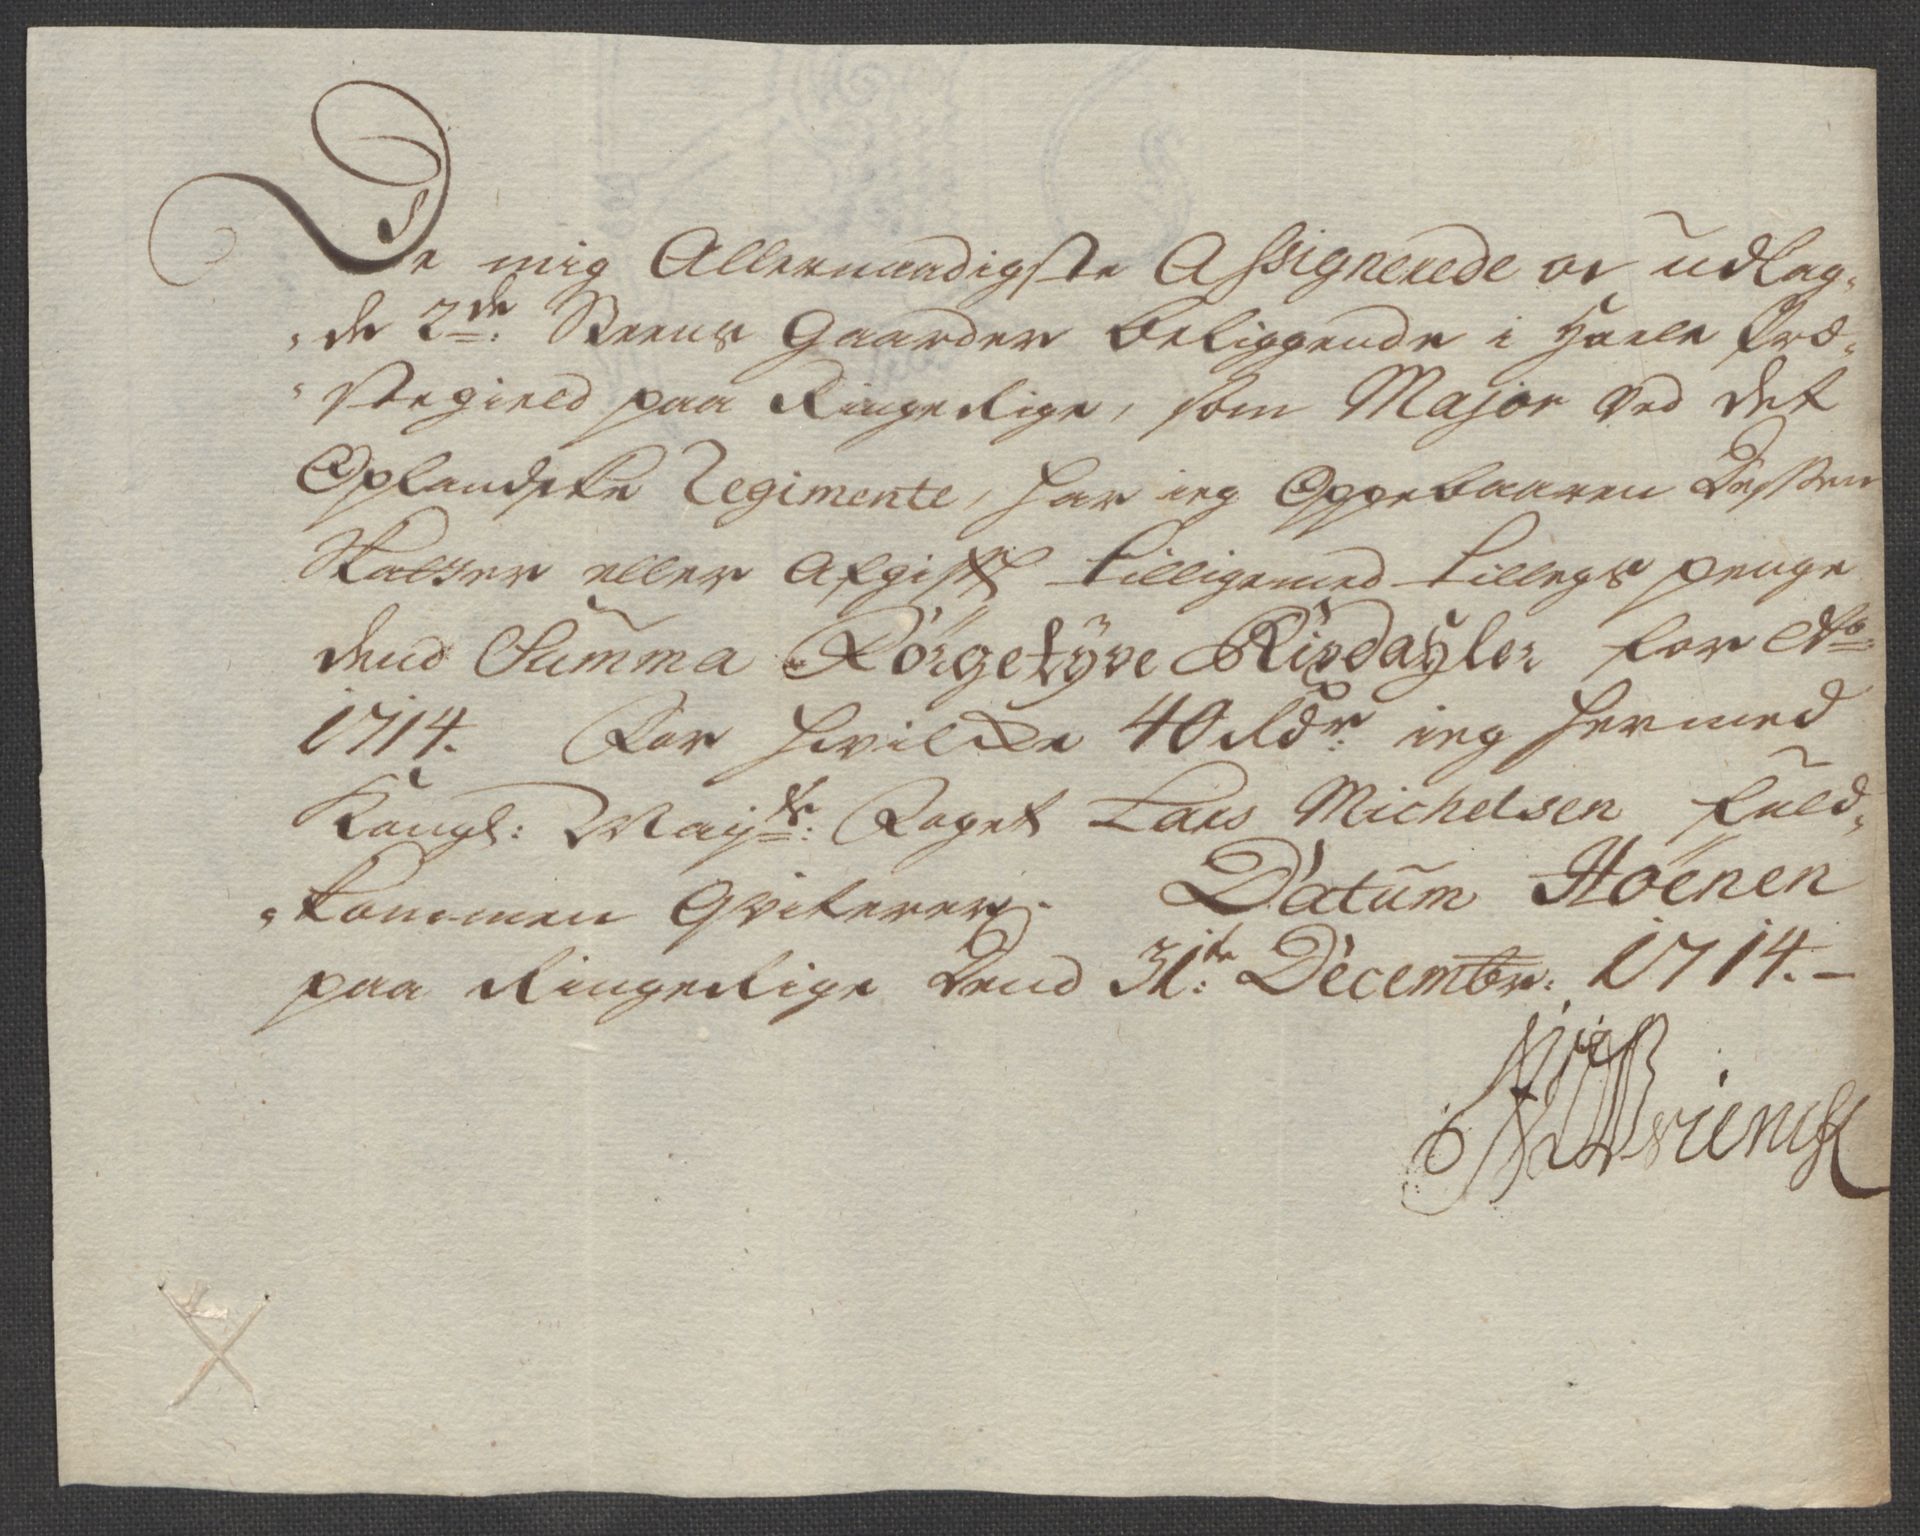 De mig Allernaadigste Assignerede oc udlag-
de 2de: Steens Gaarder beliggende i Hoele Præ-
stegield paa Ringerige, som Major ved det
Oplandske Regimente, har ieg Oppebaaren Desssen
Skatter eller Afgift tilligemed tillegs penge
dend Summa Förgetÿve Rixdaÿler for Ao:
1714. For hvilcke 40 Rdr: ieg hermed
Kongl: Mayts: Foget Lars Michelsen fuld-
kommen Qviterer. Datum Höenen
paa Ringerige Dend 31te: Decembr: 1714.-